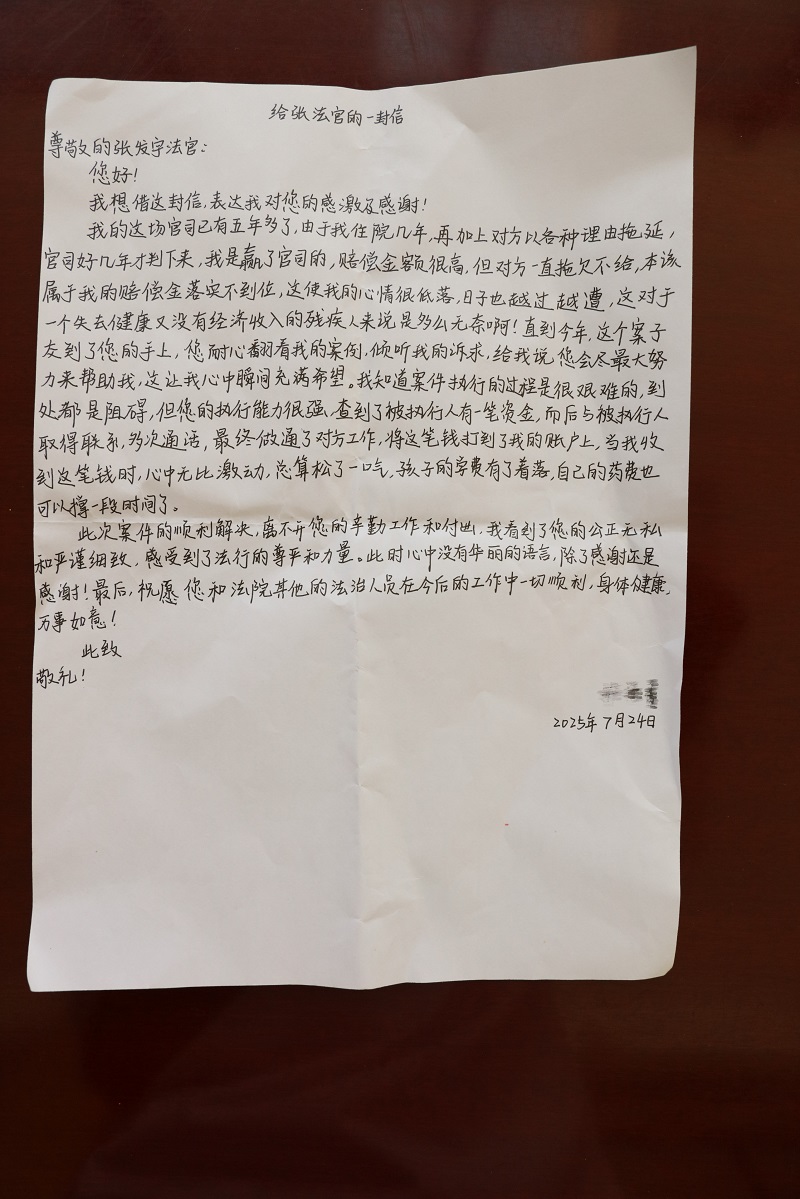 给张法官的一封信
尊敬的张发宇法官：
您好！
我想借这封信，表达我对您的感激及感谢！
我的这场官司已有五年多了，由于我住院几年，再加上对方以各种理由拖延，
官司好几年才判下来，我是赢了官司的，赔偿金额很高，但对方一直拖欠不给，本该
属于我的赔偿金落实不到位，这使我的心情很低落，日子也越过越遭，这对于
一个失去健康又没有经济收入的残疾人来说是多么无奈啊！直到今年，这个案子
交到了您的手上，您耐心翻看我的案例，倾听我的诉求，给我说您会尽最大努
力来帮助我，这让我心中瞬间充满希望。我知道案件执行的过程是很艰难的，到
处都是阻碍，但您的执行能力很强，查到了被执行人有一笔资金，而后与被执行人
取得联系，多次通话，最终做通了对方工作，将这笔钱打到了我的账户上，当我收
到这笔钱时，心中无比激动，总算松了一口气，孩子的学费有了着落，自己的药费也
可以撑一段时间了。
此次案件的顺利解决，离不开您的辛勤工作和付出，我看到了您的公正无私
和严谨细致，感受到了法行的尊严和力量。此时心中没有华丽的语言，除了感谢还是
感谢！最后，祝愿您和法院其他的法治人员在今后的工作中一切顺利，身体健康，
万事如意！
此致
敬礼！
2025年7月24日